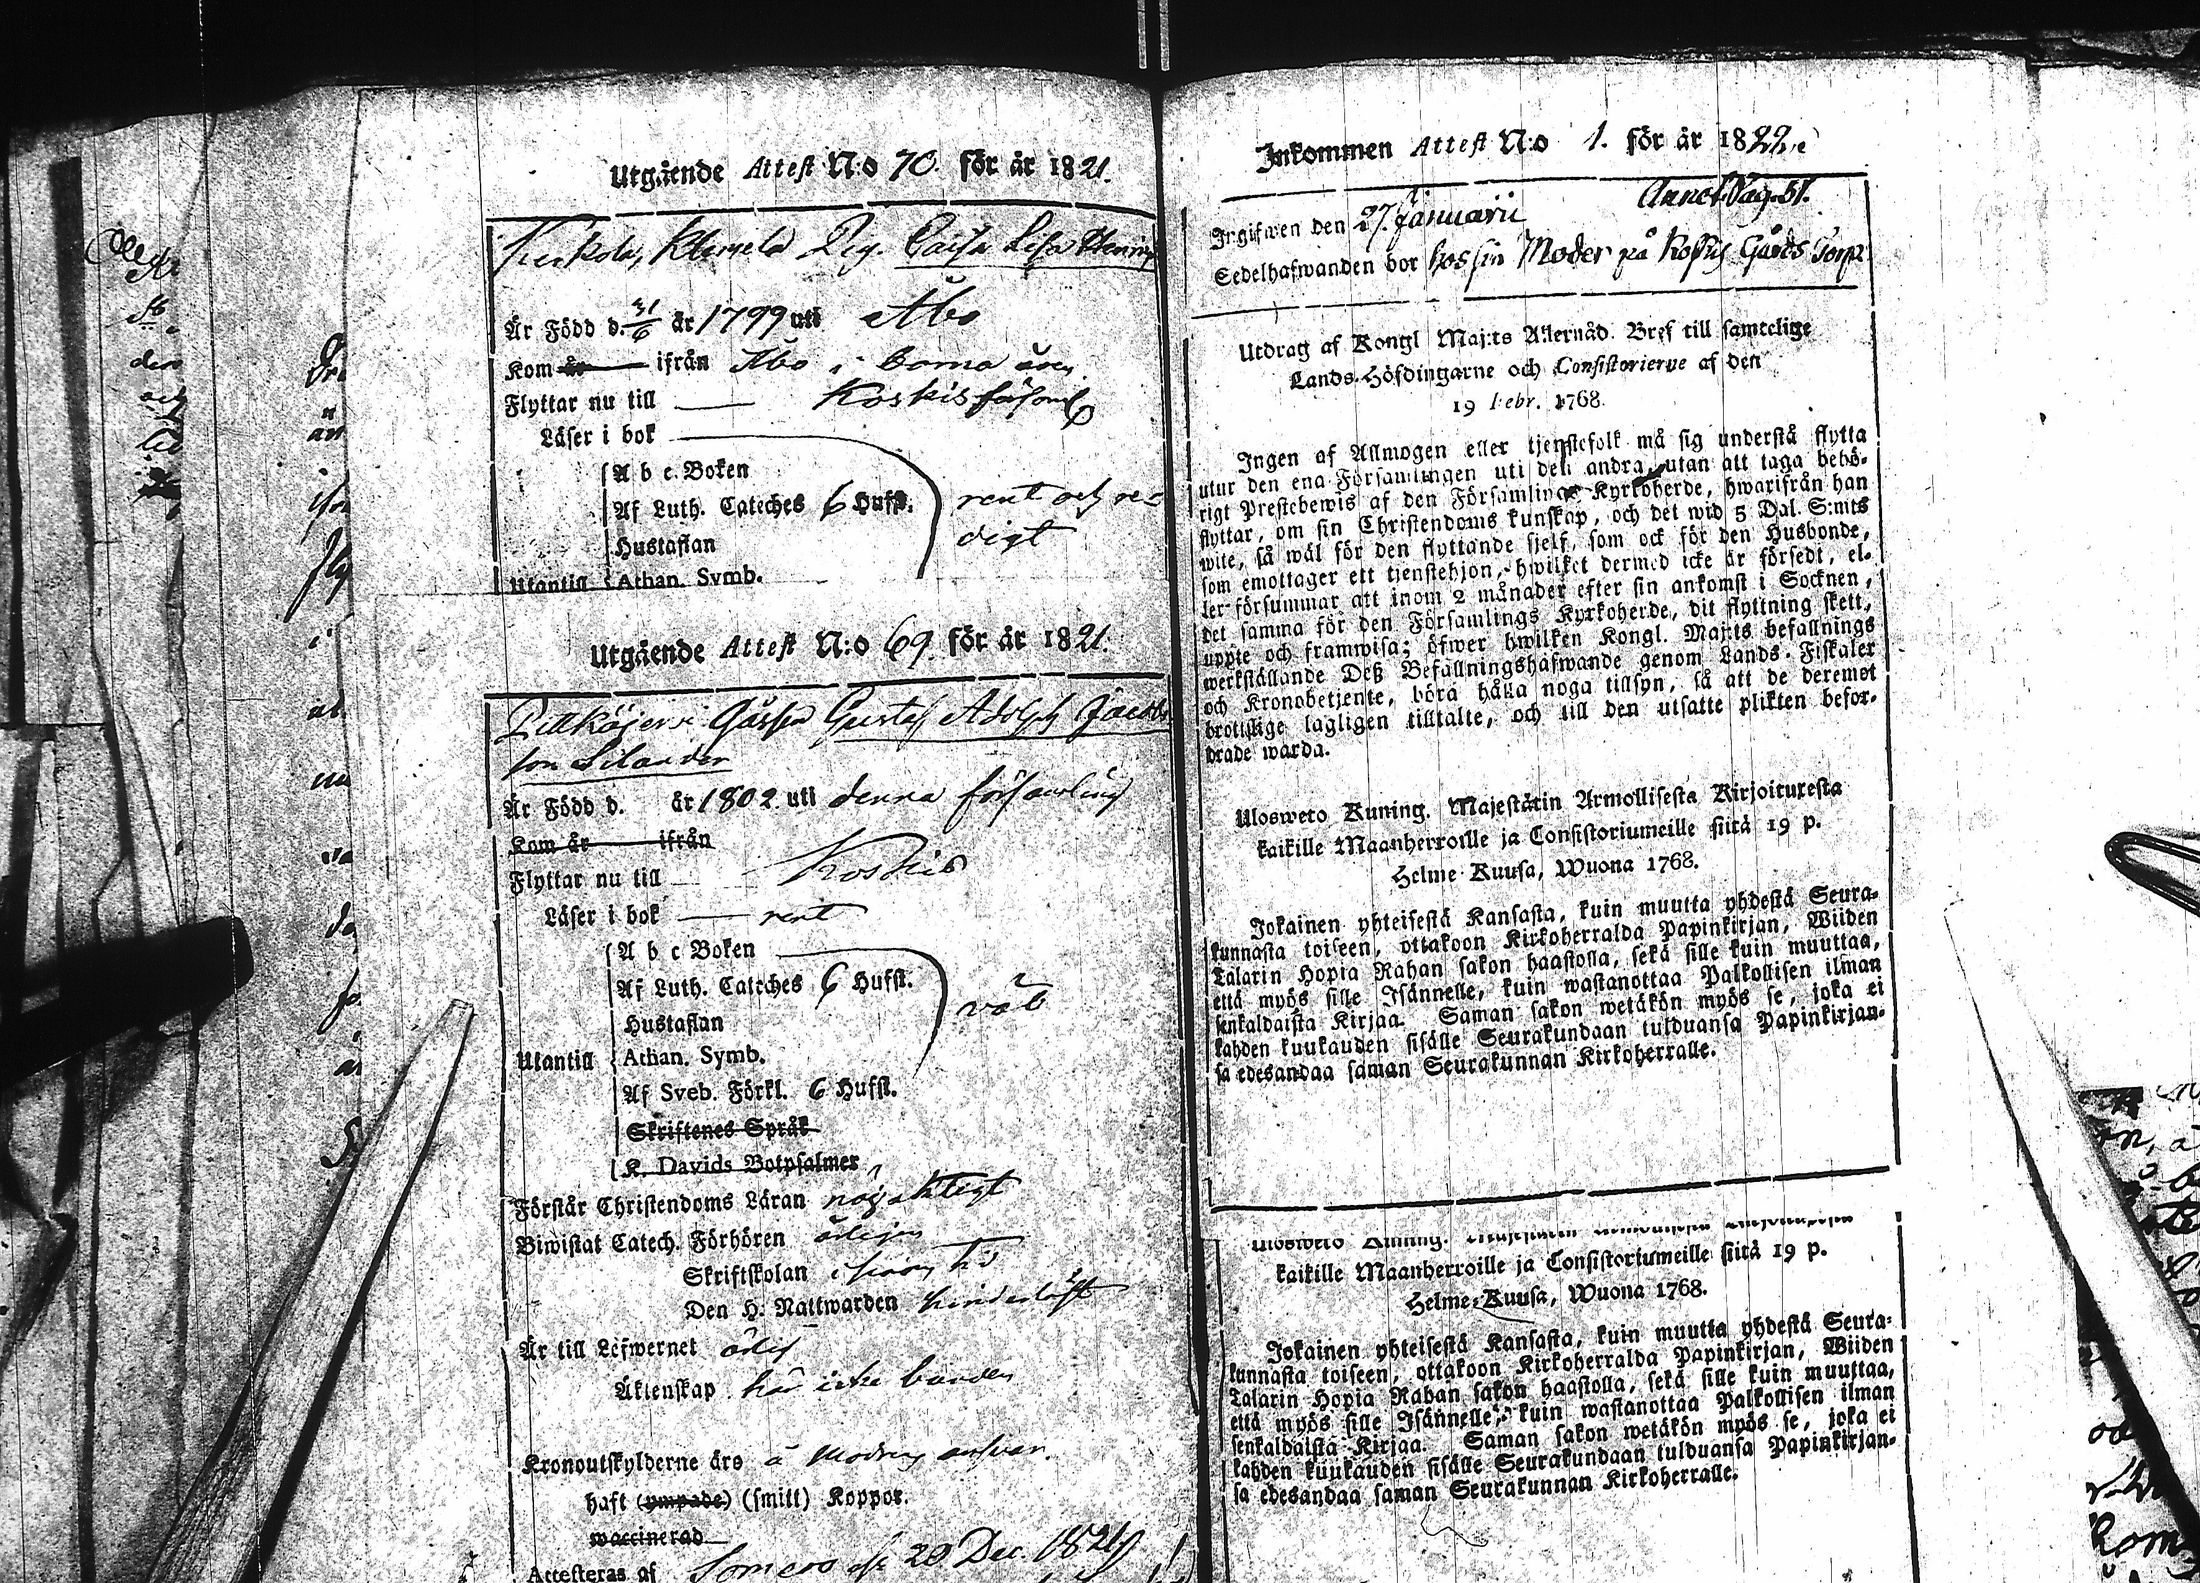 Utgående Attest N:o 70. för år 1821.
Pig. Caisa Lisa Henrics
Är Född d. 21/6 år 1799 uti Åbo
Kom år ifrån Åbo i barna åren
Flyttar nu till Koskis församl
Läser i bok
A b c Boken
Af Luth. Cateches 6 Hufst. rent och re-
Hustaflan digt
Utantill Athan. Symb.
Utgående Attest N:o 69. för år 1821.
Gåssen Gustaf Adolph Jacobs
son Silander
Är Född d. år 1802 uti denna församling
Kom år ifrån
Flyttar nu till Koskis
Läser i bok rent
A b c Boken
Af Luth. Cateches 6 Hufst.
Hustaflan väl
Utantill Athan. Symb.
Af Sveb. Förkl. 6 Hufst.
Skriftenes Språk
K. Davids Botpsalmer
Förstår Christendoms Läran nöjaktigt
Biwistat Catech. Förhören årligen
Skriftskolan i sinom tid
Den H. Nattwarden
Är till Lefwernet ärlig
Äktenskap här icke bunden
Kronoutskylderne äro å modrens answar.
haft (ympade) (smitt) Koppor.
waccinerad
Attesteras af Somero d. 20 Dec. 1821
Inkommen Attest N:o 1. för år 1822.
Annot. Pag. 51.
Ingifwen den 27. Januarii
Sedelhafwanden bor hos sin Moder på Koskis Gårds Torp
Utdrag af Kongl Maj:ts Allernåd. Bref till samtelige
Lands-Höfdingarne och Consistorierne af den
19 Febr. 1768.
Ingen af Allmogen eller tjenstefolk må sig understå flytta
utur den ena Församlingen uti den andra, utan att taga behö-
rigt Prestebewis af den Församlings Kyrkoherde, hwarifrån han
flyttar, om sin Christendoms kunskap, och det wid 5 Dal. S:mts
wite, så wäl för den flyttande sjelf, som ock för den Husbonde,
som emottager ett tjenstehjon, hwilket dermed icke är försedt, el-
ler försummar att inom 2 månader efter sin ankomst i Socknen,
det samma för den Församlings Kyrkoherde, dit flyttning skett,
uppte och framwisa; öfwer hwilken Kongl. Maj:ts befallnings
werkställande Deß Befallningshafwande genom Lands-Fiskaler
och Kronobetjente, böra hålla noga tillsyn, så att de deremot
brottslige lagligen tilltalte, och till den utsatte plikten befor-
drade warda.
Ulosweto Kuning. Majestätin Armollisesta Kirjoituxesta
kaikille Maanherroille ja Consistoriumeille siitä 19 p.
Helme-Kuusa, Wuona 1768.
Jokainen yhteisestä Kansasta, kuin muutta yhdestä Seura-
kunnasta toiseen, ottakoon Kirkoherralda Papinkirjan, Wiiden
Talarin Hopia Rahan sakon haastolla, sekä sille kuin muuttaa,
että myös sille Isännelle, kuin wastanottaa Palkollisen ilman
senkaldaista Kirjaa. Saman sakon wetäkön myös se, joka ei
kahden kuukauden sisälle Seurakundaan tulduansa Papinkirjan-
sa edesandaa saman Seurakunnan Kirkoherralle.
Ulosweto Kuning. Majestätin Armollisesta Kirjoituxesta
kaikille Maanherroille ja Consistoriumeille siitä 19 p.
Helme-Kuusa, Wuona 1768.
Jokainen yhteisestä Kansasta, kuin muutta yhdestä Seura-
kunnasta toiseen, ottakoon Kirkoherralda Papinkirjan, Wiiden
Talarin Hopia Rahan sakon haastolla, sekä sille kuin muuttaa,
että myös sille Isännelle, kuin wastanottaa Palkollisen ilman
senkaldaista Kirjaa. Saman sakon wetäkön myös se, joka ei
kahden kuukauden sisälle Seurakundaan tulduansa Papinkirjan-
sa edesandaa saman Seurakunnan Kirkoherralle.